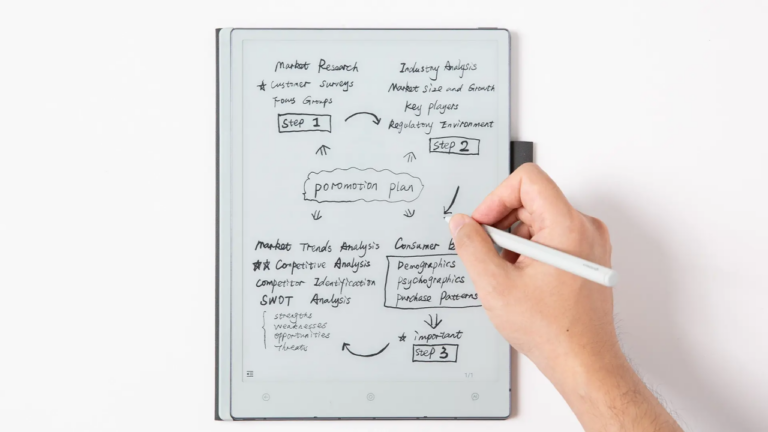 Market Research
☆ Customer Surveys
Focus Groups
Step 1
Industry Analysis
Market Size and Growth
key players
Regulatory Environment
Step 2
poromotion plan
Market Trends Analysis
☆☆ Competitive Analysis
Competitor Identification
SWOT Analysis
strengths
weaknesses
opportunities
threats
Consumer
Demographics
psychographics
purchase patterns
☆ important
Step 3